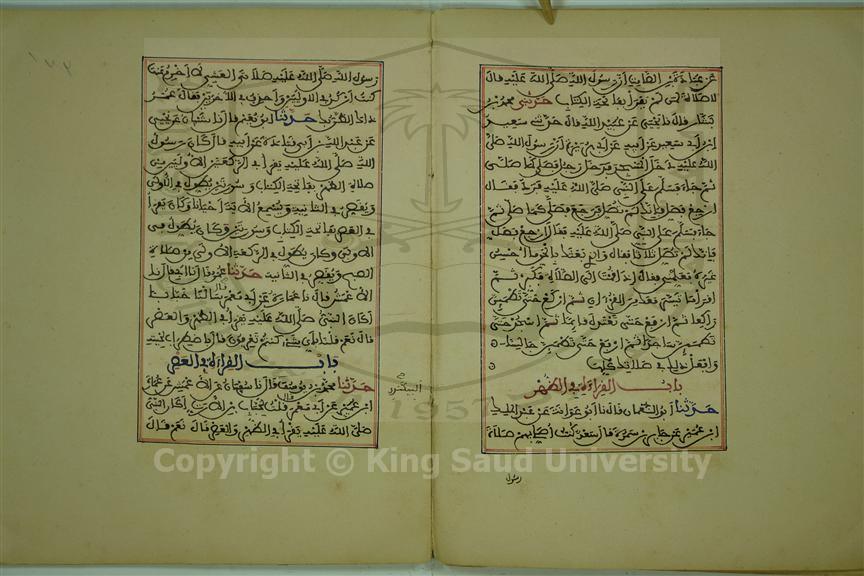 عن عبادة بن الصامت أن رسول الله صلى الله عليه قال
لا صلاة لمن لم يقرأ بفاتحة الكتاب حدثني محمد بن
بشار قال نا يحيى عن عبيد الله قال حدثني سعيد
ابن أبي سعيد عن أبيه عن أبي هريرة أن رسول الله صلى
الله عليه دخل المسجد فدخل رجل فصلى كما صلى
ثم جاء فسلم على النبي صلى الله عليه فرد فقال
ارجع فصل فإنك لم تصل فرجع فصلى كما صلى ثم
جاء فسلم على النبي صلى الله عليه فقال ارجع فصل
فإنك لم تصل ثلاثا فقال والذي بعثك بالحق ما أحسن
غيره فعلمني فقال إذا قمت إلى الصلاة فكبر ثم
اقرأ ما تيسر معك من القرآن ثم اركع حتى تطمئن
راكعا ثم ارفع حتى تعتدل قائما ثم اسجد حتى
تطمئن ساجدا ثم ارفع حتى تطمئن جالسا
وافعل ذلك في صلاتك كلها
باب القراءة في الظهر
حدثنا أبو النعمان قال نا أبو عوانة عن عبد الملك
ابن عمير عن جابر بن سمرة قال سعد كنت أصلي بهم صلاة
رسول
١٧٢
رسول الله صلى الله عليه صلاتي العشي لا أخرم عنها
كنت أركد في الأوليين وأحذف في الأخريين فقال عمر
ذاك الظن بك حدثنا أبو نعيم قال نا شيبان عن يحيى
عن عبد الله بن أبي قتادة عن أبيه قال كان رسول
الله صلى الله عليه يقرأ في الركعتين الأوليين من
صلاة الظهر بفاتحة الكتاب وسورتين يطول في الأولى
ويقصر في الثانية ويسمع الآية أحيانا وكان يقرأ
في العصر بفاتحة الكتاب وسورتين وكان يطول في
الأولى وكان يطول في الركعة الأولى من صلاة
الصبح ويقصر في الثانية حدثنا عمر قال نا أبي قال نا
الأعمش قال نا عمارة عن أبي معمر قال سألنا خبابا
أكان النبي صلى الله عليه يقرأ في الظهر والعصر
قال نعم قلنا بأي شيء كنتم تعرفون قال باضطراب لحيته
باب القراءة في العصر
حدثنا محمد بن يوسف قال نا سفيان عن الأعمش عن عمارة
ابن عمير عن أبي معمر قال قلت لخباب بن الأرت أكان النبي
صلى الله عليه يقرأ في الظهر والعصر قال نعم قال
البيكندي
1957
Copyright © King Saud University